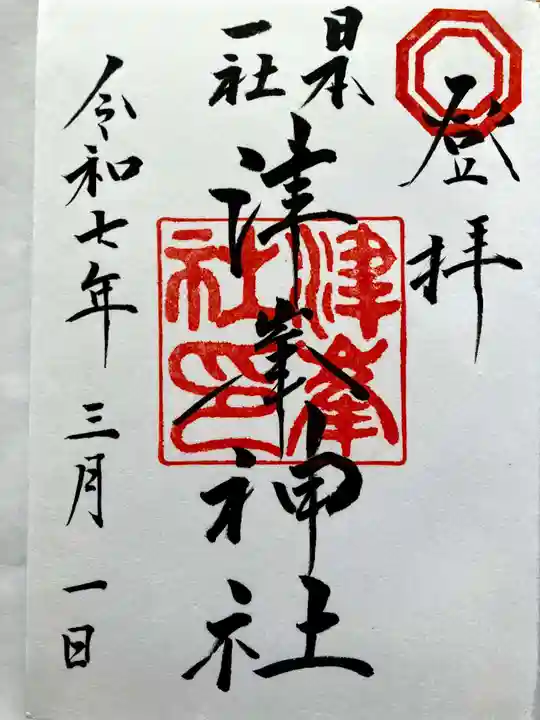 登拝
日本
一社
津峯神社
津峯
社印
令和七年三月一日